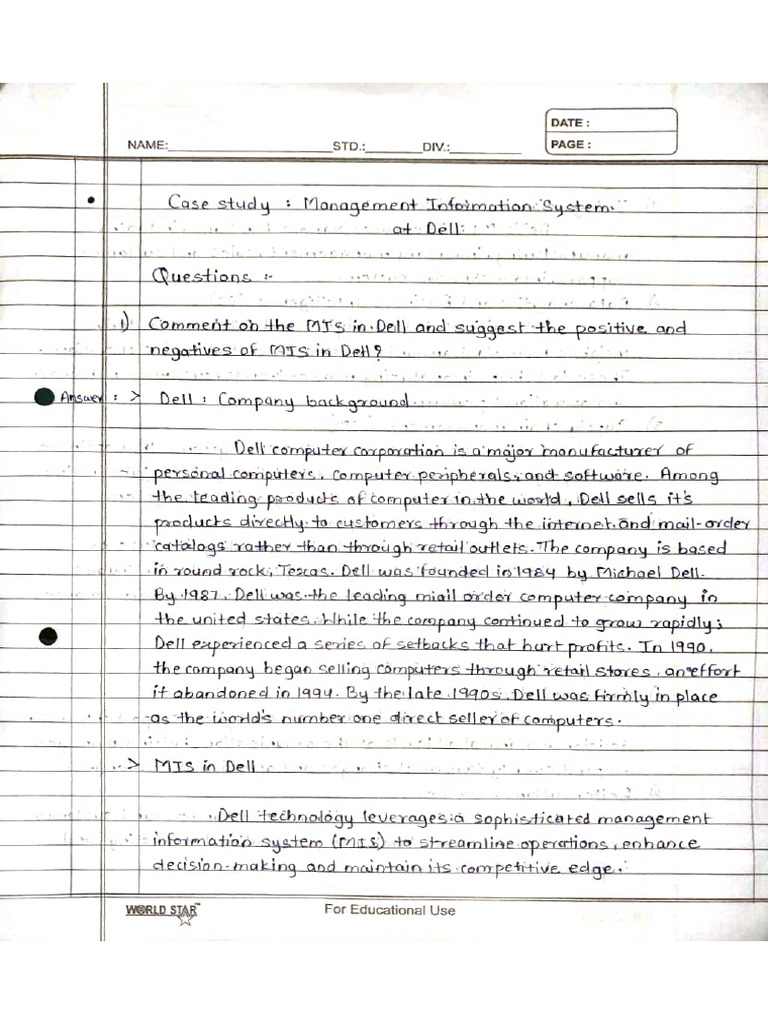 DATE :
NAME: STD.: DIV.: PAGE :
• Case study : Management Information System
at Dell:
Questions :-
1) Comment on the MIS in Dell and suggest the positive and
negatives of MIS in Dell?
Answer : > Dell : Company background
Dell computer corporation is a major manufacturer of
personal computers, computer peripherals, and software. Among
the leading products of computer in the world, Dell sells it's
products directly to customers through the internet and mail-order
catalogs rather than through retail outlets. The company is based
in round rock, Texas. Dell was founded in 1984 by Michael Dell.
By 1987, Dell was the leading miail order computer company in
the united states. While the company continued to grow rapidly;
Dell experienced a series of setbacks that hurt profits. In 1990,
the company began selling computers through retail stores, an effort
it abandoned in 1994. By the late 1990s, Dell was firmly in place
as the world's number one direct seller of computers.
> MIS in Dell
Dell technology leverages a sophisticated management
information system (MIS) to streamline operations, enhance
decision-making and maintain its competitive edge.
WORLD STAR™ For Educational Use